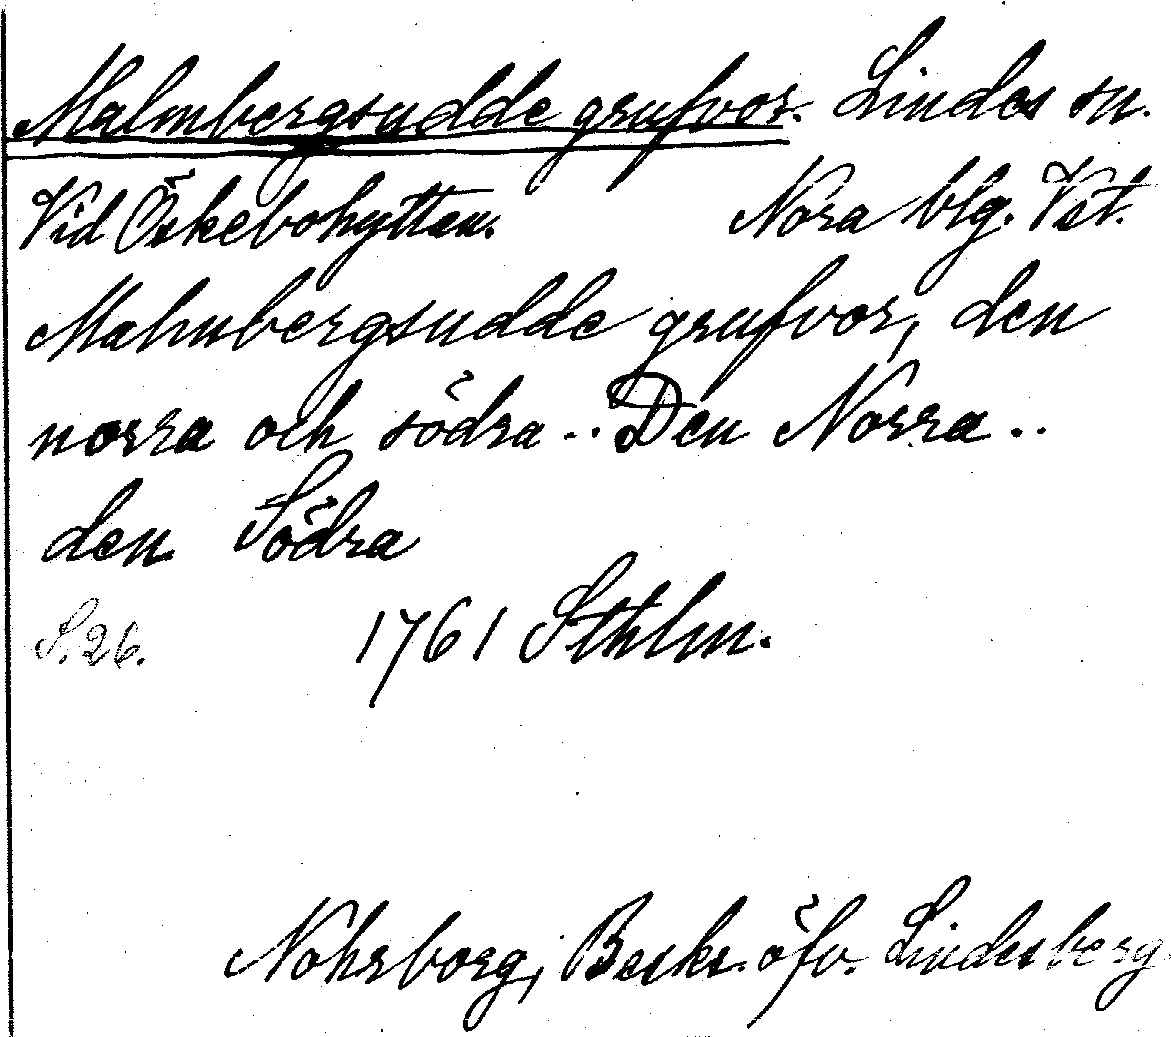 Malmbergsudde grufvor. Lindes sn.
Vid Öskebohyttan. Nora blg. Vst.
Malmbergsudde grufvor, den
norra och södra .. Den Norra ..
den Södra
S. 26. 1761 Sthlm.
Nohrborg, Beskr. öfv. Lindesberg